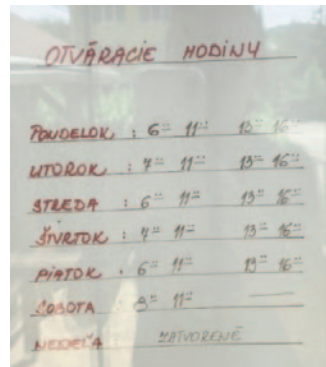 OTVÁRACIE HODINY
PONDELOK : 6⁰⁰ 11⁰⁰ 13⁰⁰ 16⁰⁰
UTOROK : 7⁰⁰ 11⁰⁰ 13⁰⁰ 16⁰⁰
STREDA : 6⁰⁰ 11⁰⁰ 13⁰⁰ 16⁰⁰
ŠTVRTOK : 7⁰⁰ 11⁰⁰ 13⁰⁰ 16⁰⁰
PIATOK : 6⁰⁰ 11⁰⁰ 13⁰⁰ 16⁰⁰
SOBOTA : 8⁰⁰ 11⁰⁰ —
NEDEĽA ZATVORENÉ